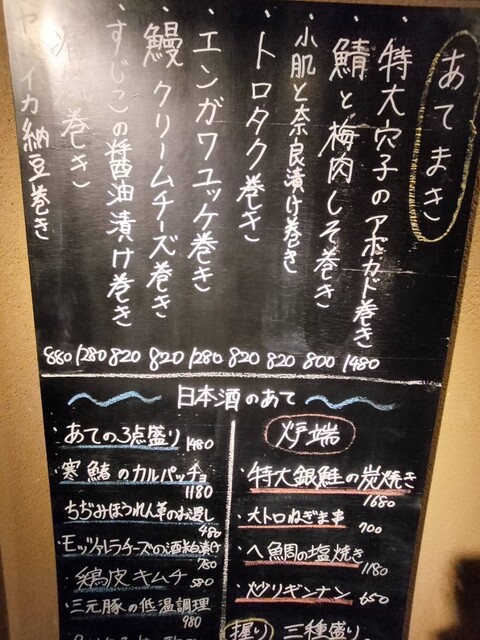 あてまき
・特大穴子のアボカド巻き 1480
・鯖と梅肉しそ巻き 800
・小肌と奈良漬け巻き 820
・トロタク巻き 820
・エンガワユッケ巻き 1280
・鰻クリームチーズ巻き 820
・すじこの醤油漬け巻き 820
巻き 1280
イカ納豆巻き 880
日本酒のあて
・あての3点盛り 1480
・寒鰆のカルパッチョ 1180
ちぢみほうれん草のお浸し 480
・モッツァレラチーズの酒粕漬け 780
・鶏皮キムチ 580
・三元豚の低温調理 980
炉端
・特大銀鮭の炭焼き 1680
・大トロねぎま串 700
・へ鯛の塩焼き 1180
・炒りギンナン 650
握り 三種盛り